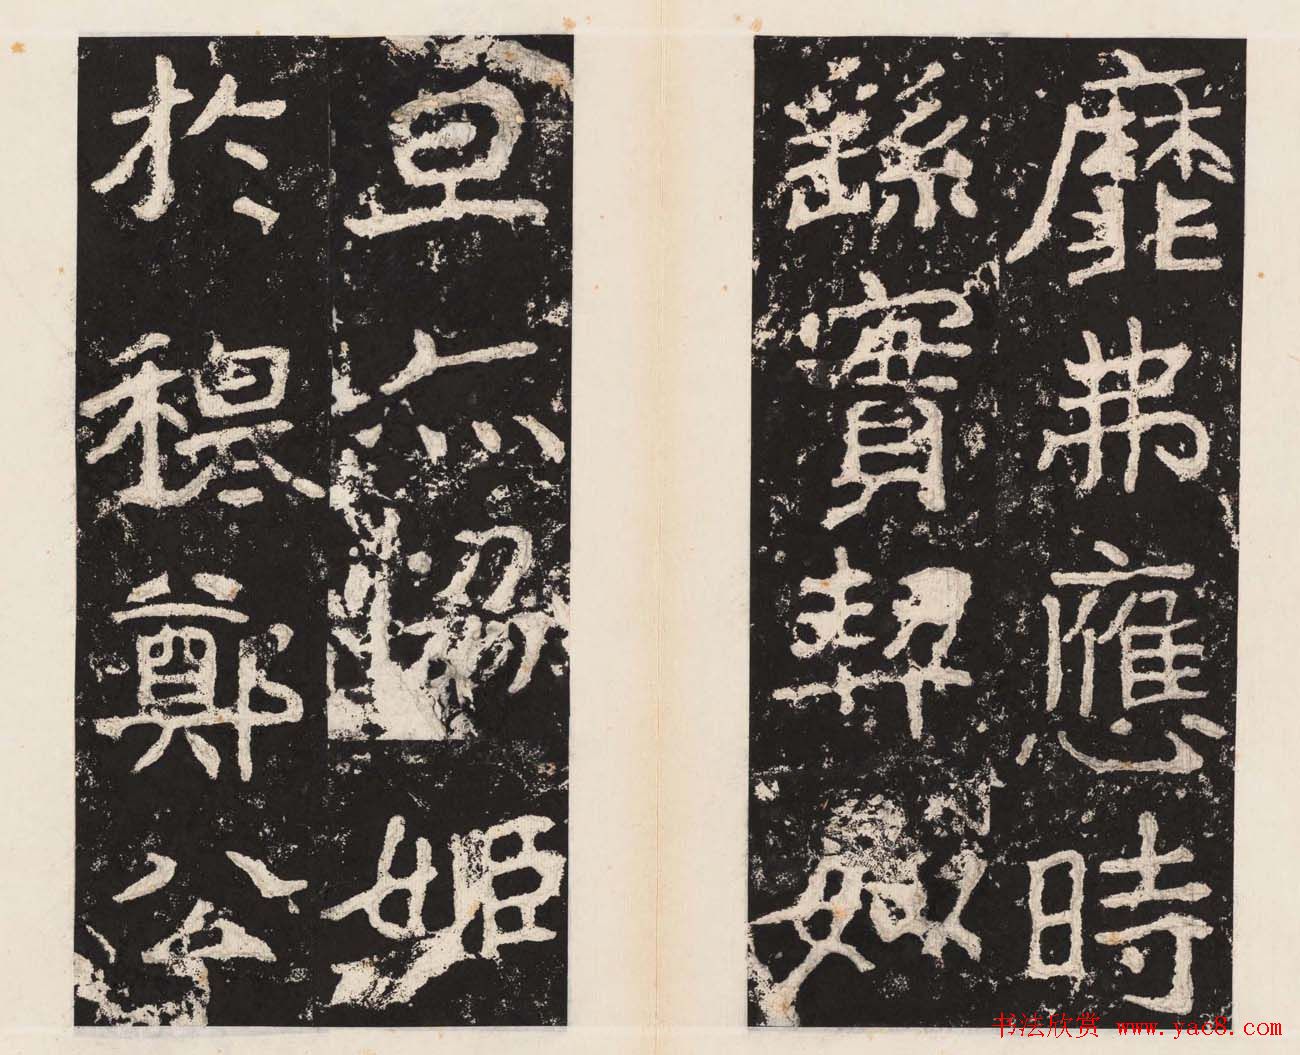 靡弗應時
繇實契姒
旦亦協姬
於穆鄭公
书法欣赏 www.yac8.com